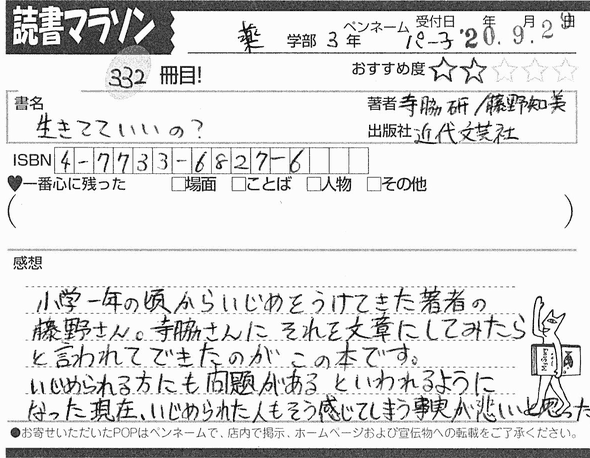 読書マラソン
薬 学部 3 年 ペンネーム パー子 受付日 '20.9.2 年 月 日
332 冊目! おすすめ度 ☆☆☆☆☆
書名 生きてていいの? 著者 寺脇研/藤野知美
出版社 近代文芸社
ISBN 4-7733-6827-6
♥一番心に残った □場面 □ことば □人物 □その他
( )
感想
小学一年の頃からいじめをうけてきた著者の
藤野さん。寺脇さんに それを文章にしてみたら
と言われてできたのが この本です。
いじめられる方にも問題がある といわれるように
なった現在、いじめられた人もそう感じてしまう事実が悲しいと思った
●お寄せいただいたPOPはペンネームで、店内で掲示、ホームページおよび宣伝物への転載をご了承ください。